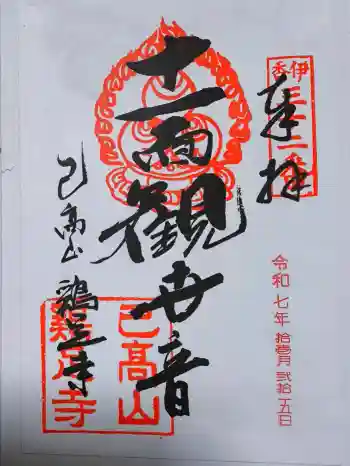 奉拝
十一面観世音
己高山
鶏足寺
令和七年 拾壹月 弐拾五日
己高山
鶏足寺